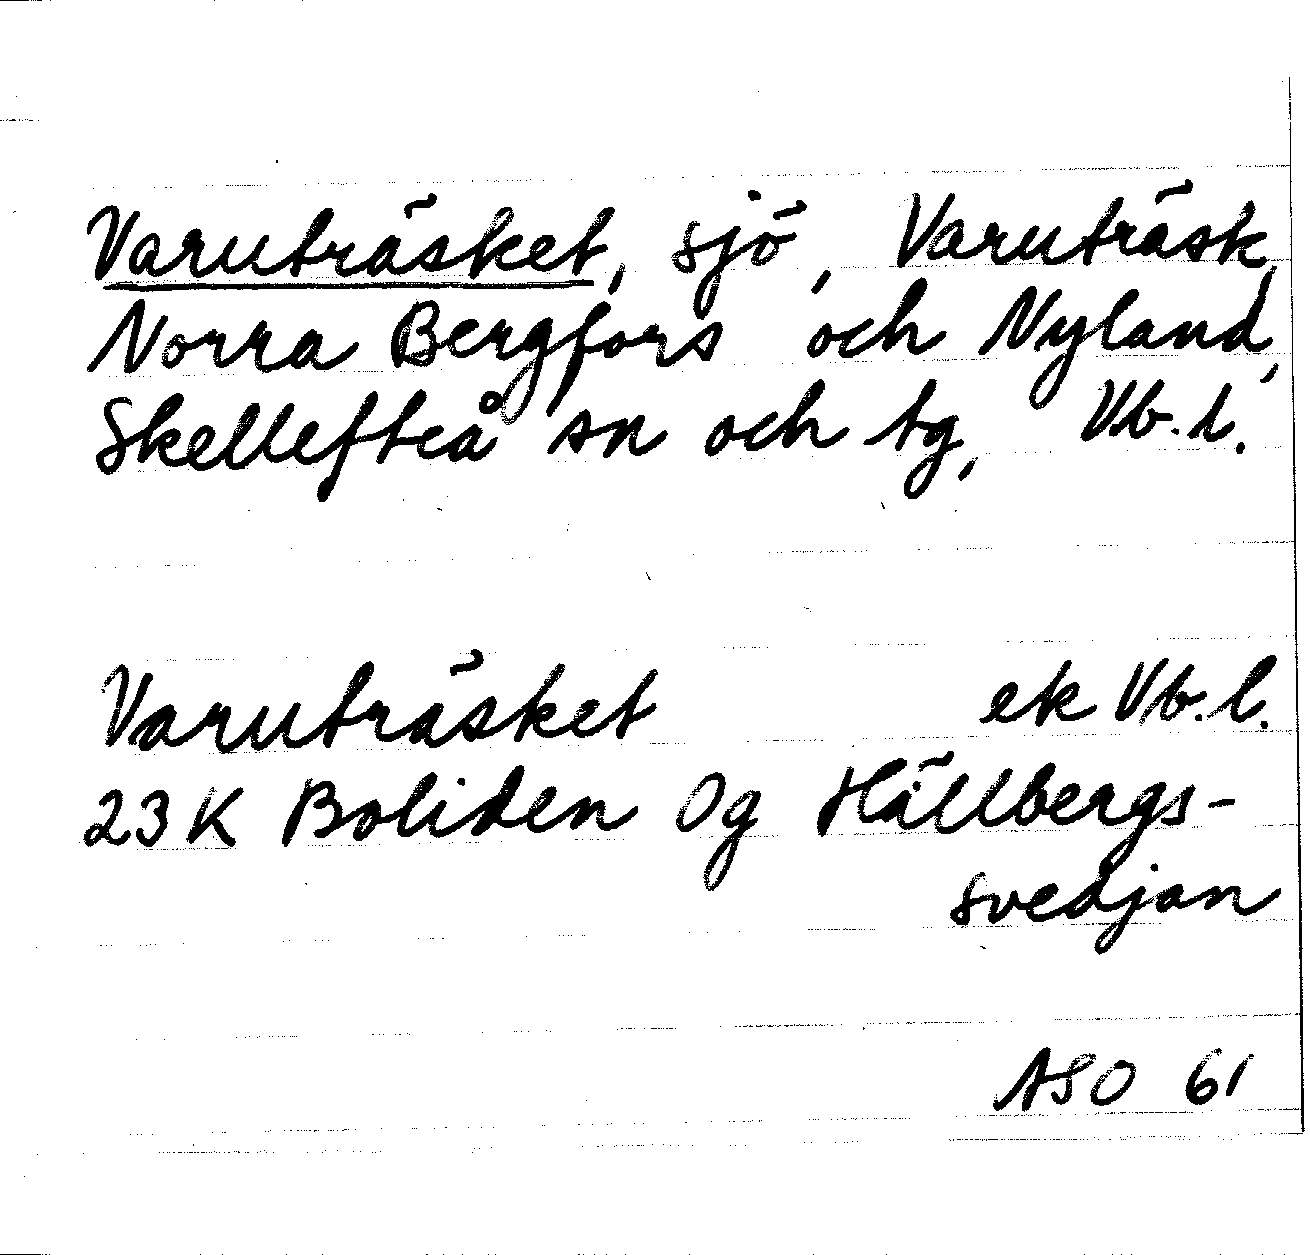 Varuträsket, sjö, Varuträsk,
Norra Bergfors och Nyland,
Skellefteå sn och tg, Vb.l.
Varuträsket ek Vb.l.
23K Boliden 0g Hällbergs-
svedjan
ASO 61